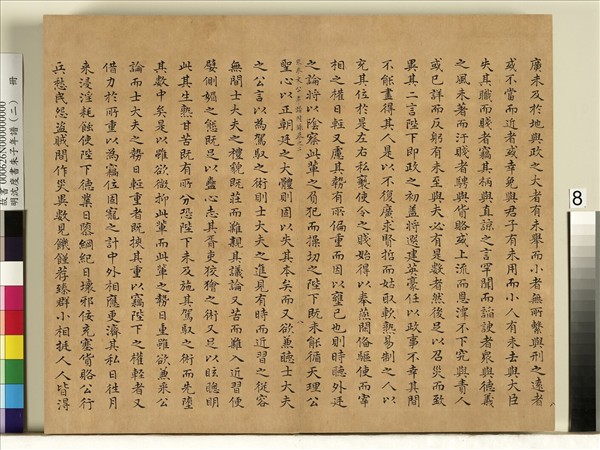 廣未及於地與政之大者有未舉而小者無所繫與刑之遠者
或不當而近者或幸免與君子有未用而小人有未去與大臣
失其職而賤者竊其柄與直諒之言罕聞而諂諛者衆與德義
之風未著而汙賤者騁與貨賂或上流而恩澤不下究與責人
或已詳而反躬有未至與夫必有是數者然後足以召災而致
異其二言陛下即政之初蓋將選建英豪任以政事不幸其間
不能盡得其人是以不復廣求賢哲而姑取軟熟易制之人以
充其位於是左右私褻使令之賤始得以奉燕閒備驅使而宰
相之權日輕又慮其勢有所偏重而因以壅己也則時聽外廷
之論將以陰察此輩之負犯而操切之陛下既未能循天理公
聖心以正朝廷之大體則固以失其本矣而又欲兼聽士大夫
之公言以為駕馭之術則士大夫之進見有時而近習之從容
無間士大夫之禮貌既莊而難親其議論又苦而難入近習便
嬖側媚之態既足以蠱心志其胥吏狡獪之術又足以眩聰明
此其生熟甘苦既有所分恐陛下未及施其駕馭之術而先墮
其數中矣是以雖欲微抑此輩而此輩之勢日重雖欲兼采公
論而士大夫之勢日輕重者既挾其重以竊陛下之權輕者又
借力於所重以為竊位固寵之計中外相應更濟其私日往月
來浸淫耗蝕使陛下德業日隳綱紀日壞邪佞充塞貨賂公行
兵愁民怨盜賊間作災異數見饑饉荐臻群小相挺人人皆得
故書 000626N000000000
明沈度書朱子年譜(二) 冊
8